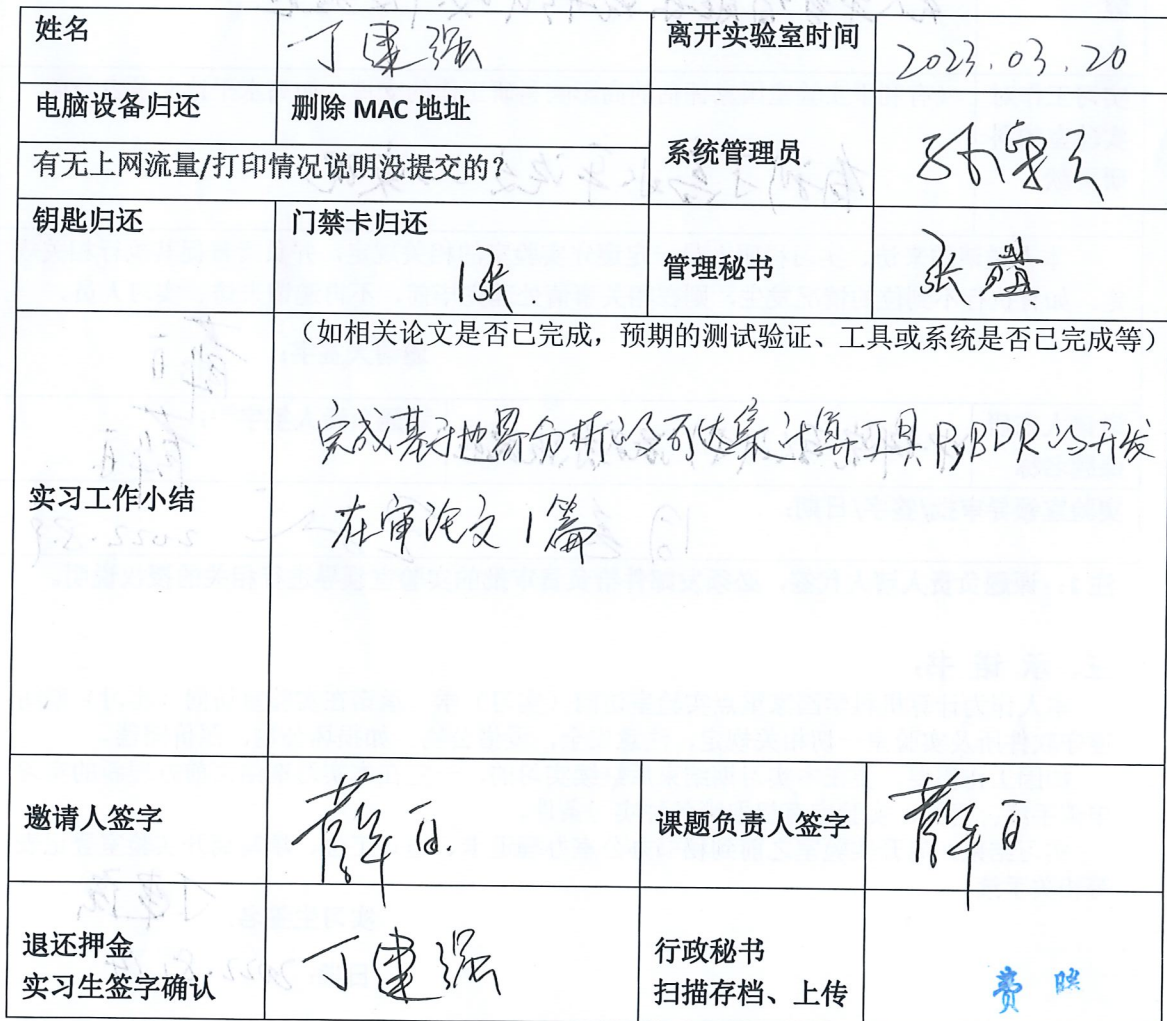 姓名
丁建强
离开实验室时间
2023.03.20
电脑设备归还
删除 MAC 地址
系统管理员
有无上网流量/打印情况说明没提交的？
钥匙归还
门禁卡归还
1张.
管理秘书
张
实习工作小结
（如相关论文是否已完成，预期的测试验证、工具或系统是否已完成等）
完成基于边界分析的可达集计算工具PyBDR的开发
在审论文1篇
邀请人签字
薛白
课题负责人签字
薛白
退还押金
实习生签字确认
丁建强
行政秘书
扫描存档、上传
费